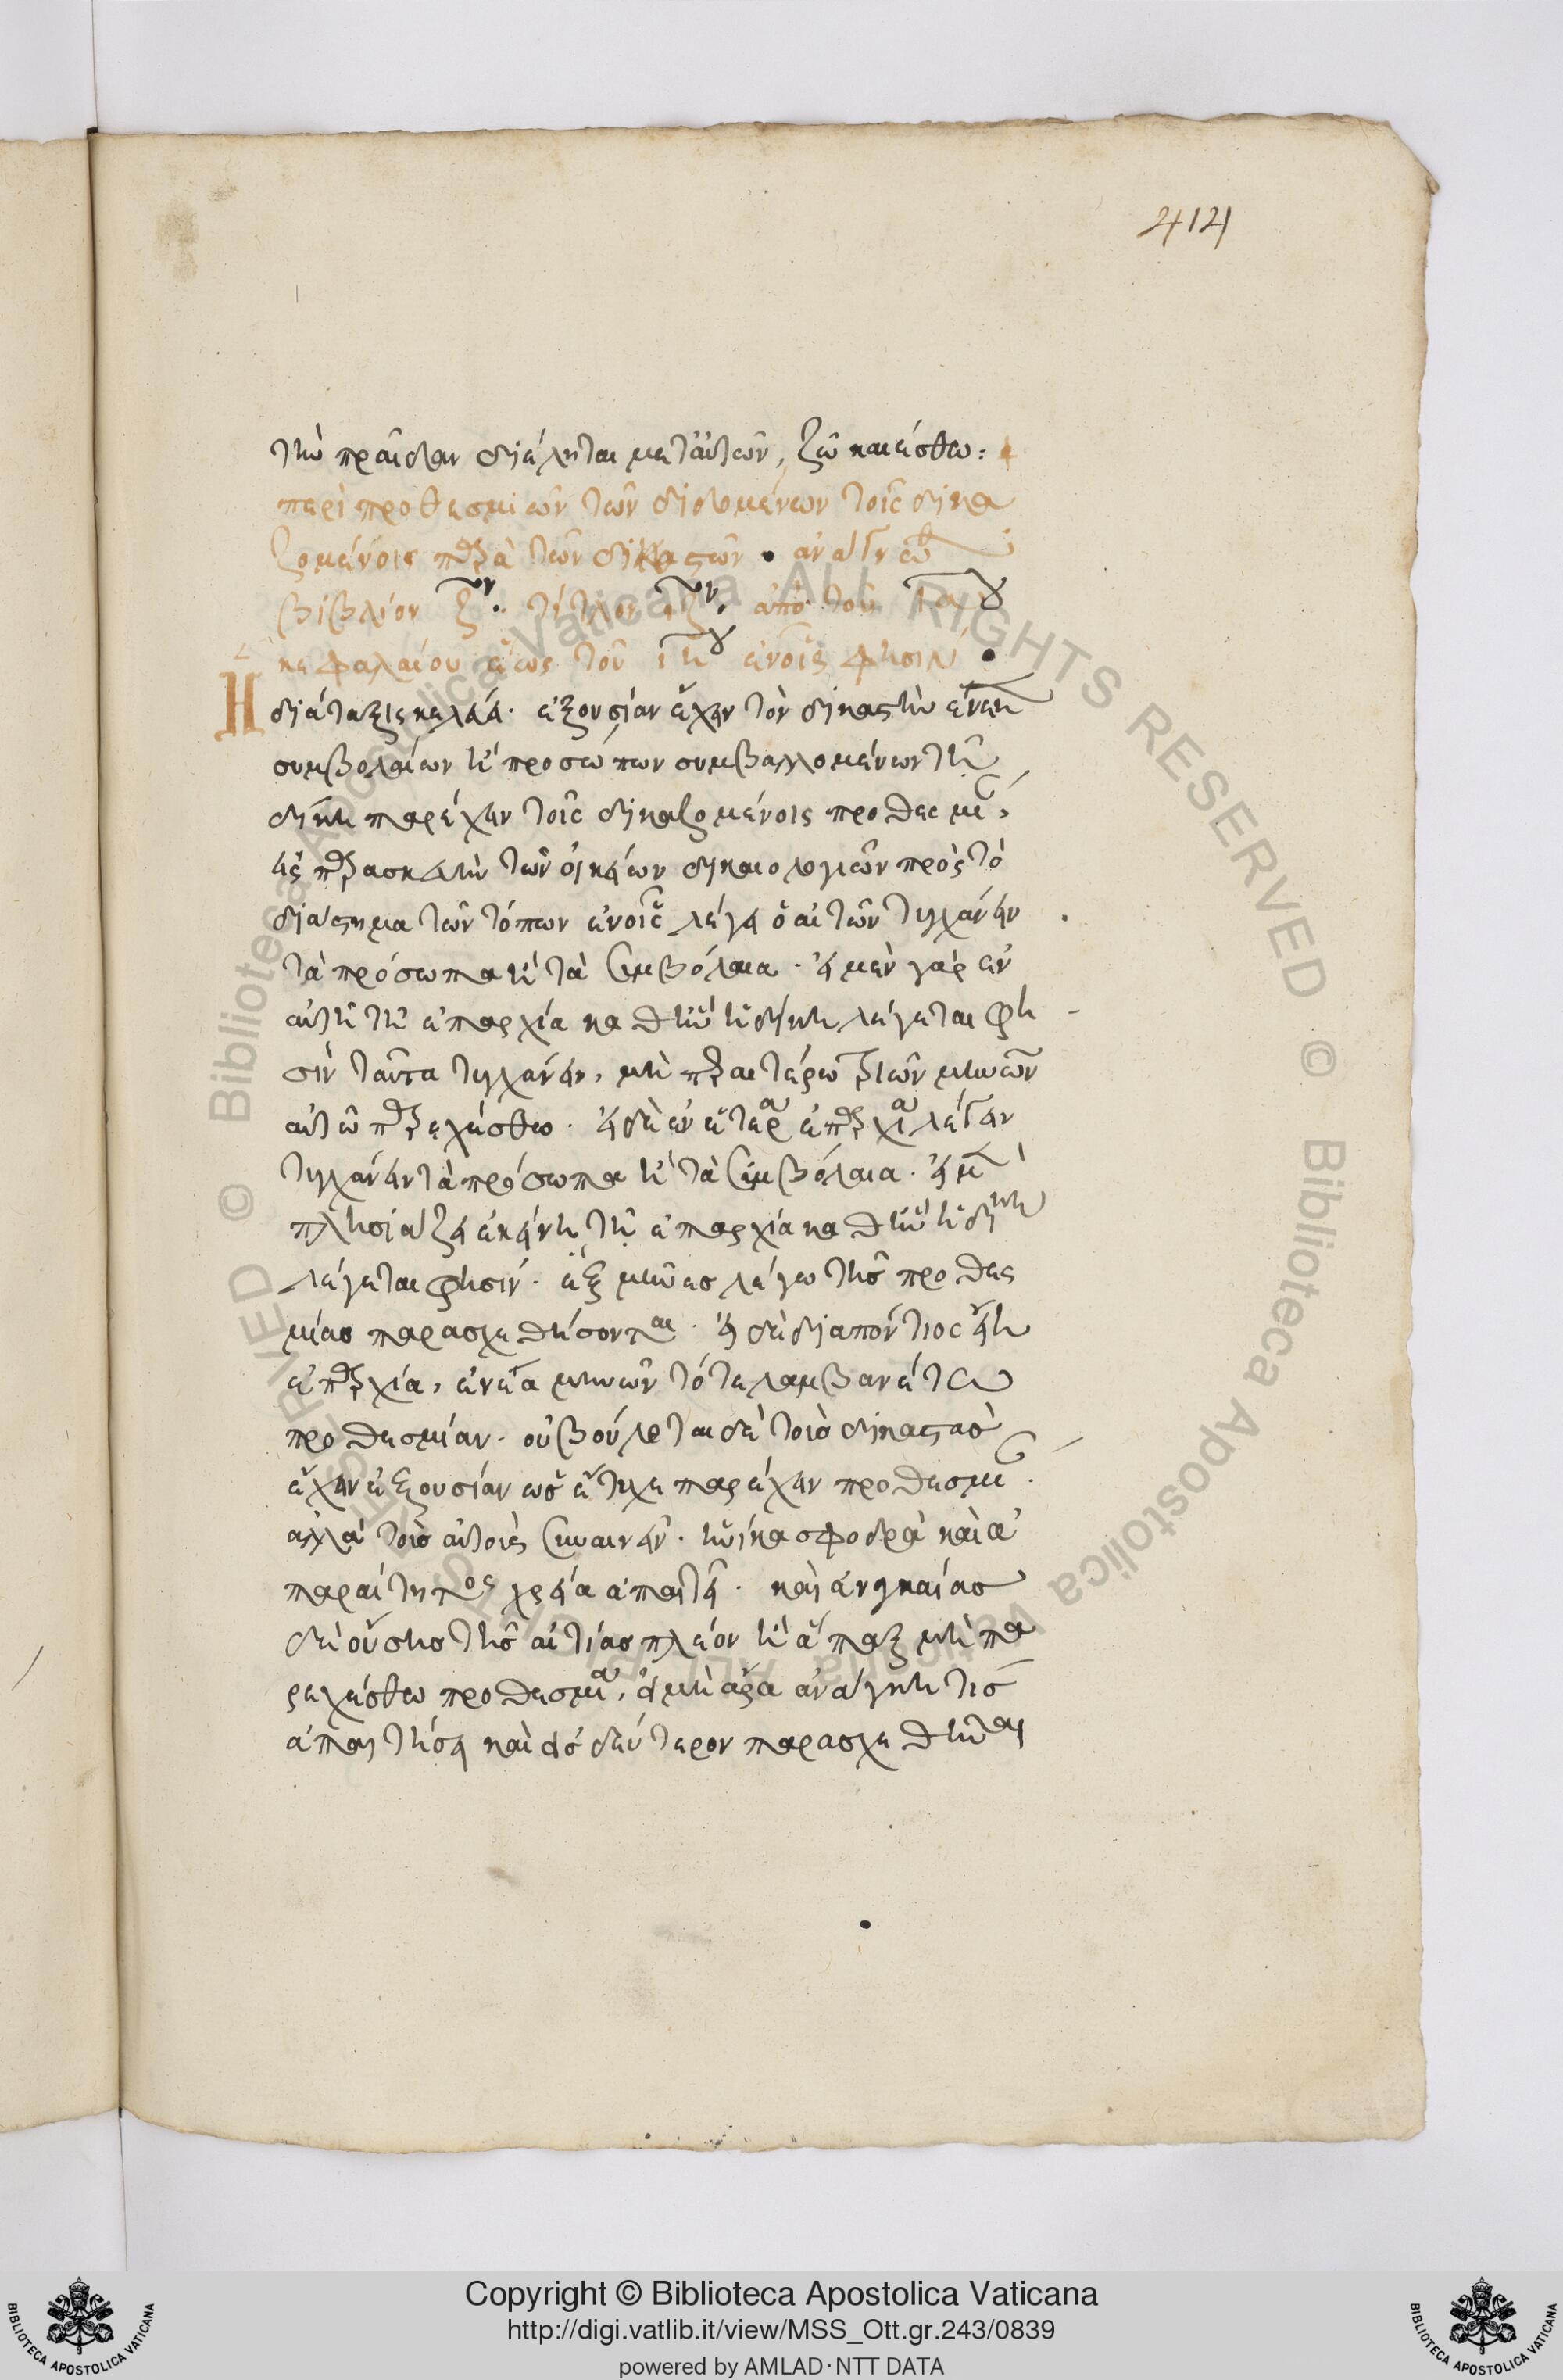 414
τὴν πραῖδαν διέληται μετ' αὐτῶν, ζῶν καιέσθω:
περὶ προθεσμιῶν τῶν διδομένων τοῖς δικα
ζομένοις παρὰ τῶν δικαστῶν. ἀνάγνωθι
βιβλίον ζον. τίτλον ιζον. ἀπὸ τοῦ
κεφαλαίου ἕως τοῦ ιη ἐν οἷς φησιν.
Η διάταξις κελεύει. ἐξουσίαν ἔχειν τὸν δικαστὴν ἕνεκεν
συμβολαίων ἢ προσώπων συμβαλλομένων τῇ
δίκῃ παρέχειν τοῖς δικαζομένοις προθεσμίαν,
εἰς παρασκευὴν τῶν οἰκείων δικαιολογιῶν πρὸς τὸ
διάστημα τῶν τόπων ἐν οἷς λέγει ὁ αἰτῶν τυγχάνειν
τὰ πρόσωπα ἢ τὰ συμβόλαια. εἰ μὲν γὰρ ἐν
αὐτῇ τῇ ἐπαρχία καθ' ἣν ἡ δίκη λέγεται φη
σὶν ταῦτα τυγχάνειν, μὴ περαιτέρω τριῶν μηνῶν
αὐτῷ παρεχέσθω. εἰ δὲ ἐν ἑτέρα ἐπαρχία λέγειν
τυγχάνειν τὰ πρόσωπα ἢ τὰ συμβόλαια. εἰ μὲν
πλησιάζει ἐκείνη τῇ ἐπαρχία καθ' ἣν ἡ δίκη
λέγεται φησίν. ἓξ μῆνες λέγω τῆς προθες
μίας παρασχεθήσονται. εἰ δὲ διαπόντιος εἴη
ἐπαρχία, ἐννέα μηνῶν τότε λαμβανέτω
προθεσμίαν. οὐ βούλεται δὲ τοὺς δικαστὰς
ἔχειν ἐξουσίαν ὡς ἔτυχε παρέχειν προθεσμίαν.
ἀλλὰ τοῖς αὐτοῖς συναινεῖν. ἡνίκα σφοδρὰ καὶ ἀ
παραίτητος χρεία ἀπαιτεῖ. καὶ ἀναγκαίας
δὲ οὔσης τῆς αἰτίας πλέον ἢ ἅπαξ μὴ πα
ρεχέσθω προθεσμία, εἰ μὴ ἄρα ἀνάγκη τις
ἀπαιτήσει καὶ εἰς δεύτερον παρασχεθῆναι
Copyright © Biblioteca Apostolica Vaticana
http://digi.vatlib.it/view/MSS_Ott.gr.243/0839
powered by AMLAD·NTT DATA